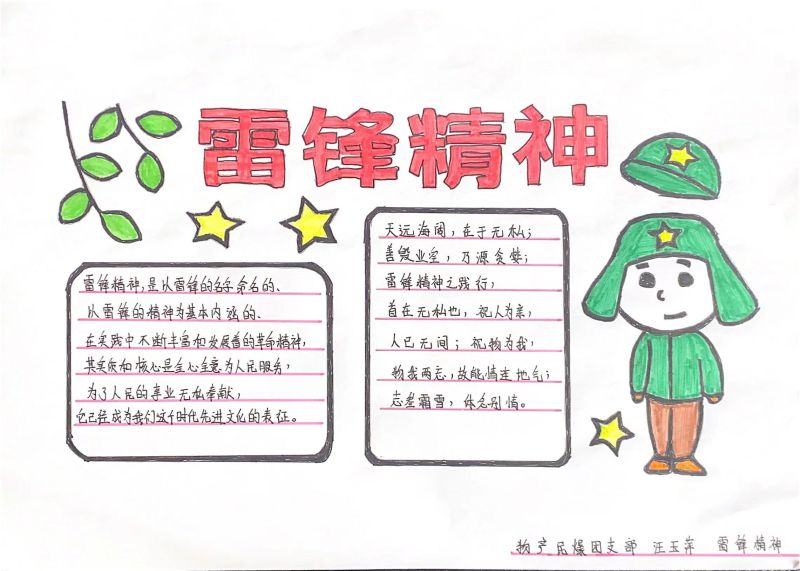 雷锋精神
雷锋精神,是从雷锋的名字命名的、
从雷锋的精神为基本内涵的、
在实践中不断丰富和发展着的革命精神,
其实质和核心是全心全意为人民服务,
为了人民的事业无私奉献,
它已经成为我们这个时代先进文化的表征。
天远海阔,在于无私;
善毁业空,乃源贪婪;
雷锋精神之践行,
首在无私也,视人为亲,
人己无间;视物为我,
物我两忘,故能情连地气;
志坚霜雪,体念别情。
物产民爆团支部 汪玉萍 雷锋精神